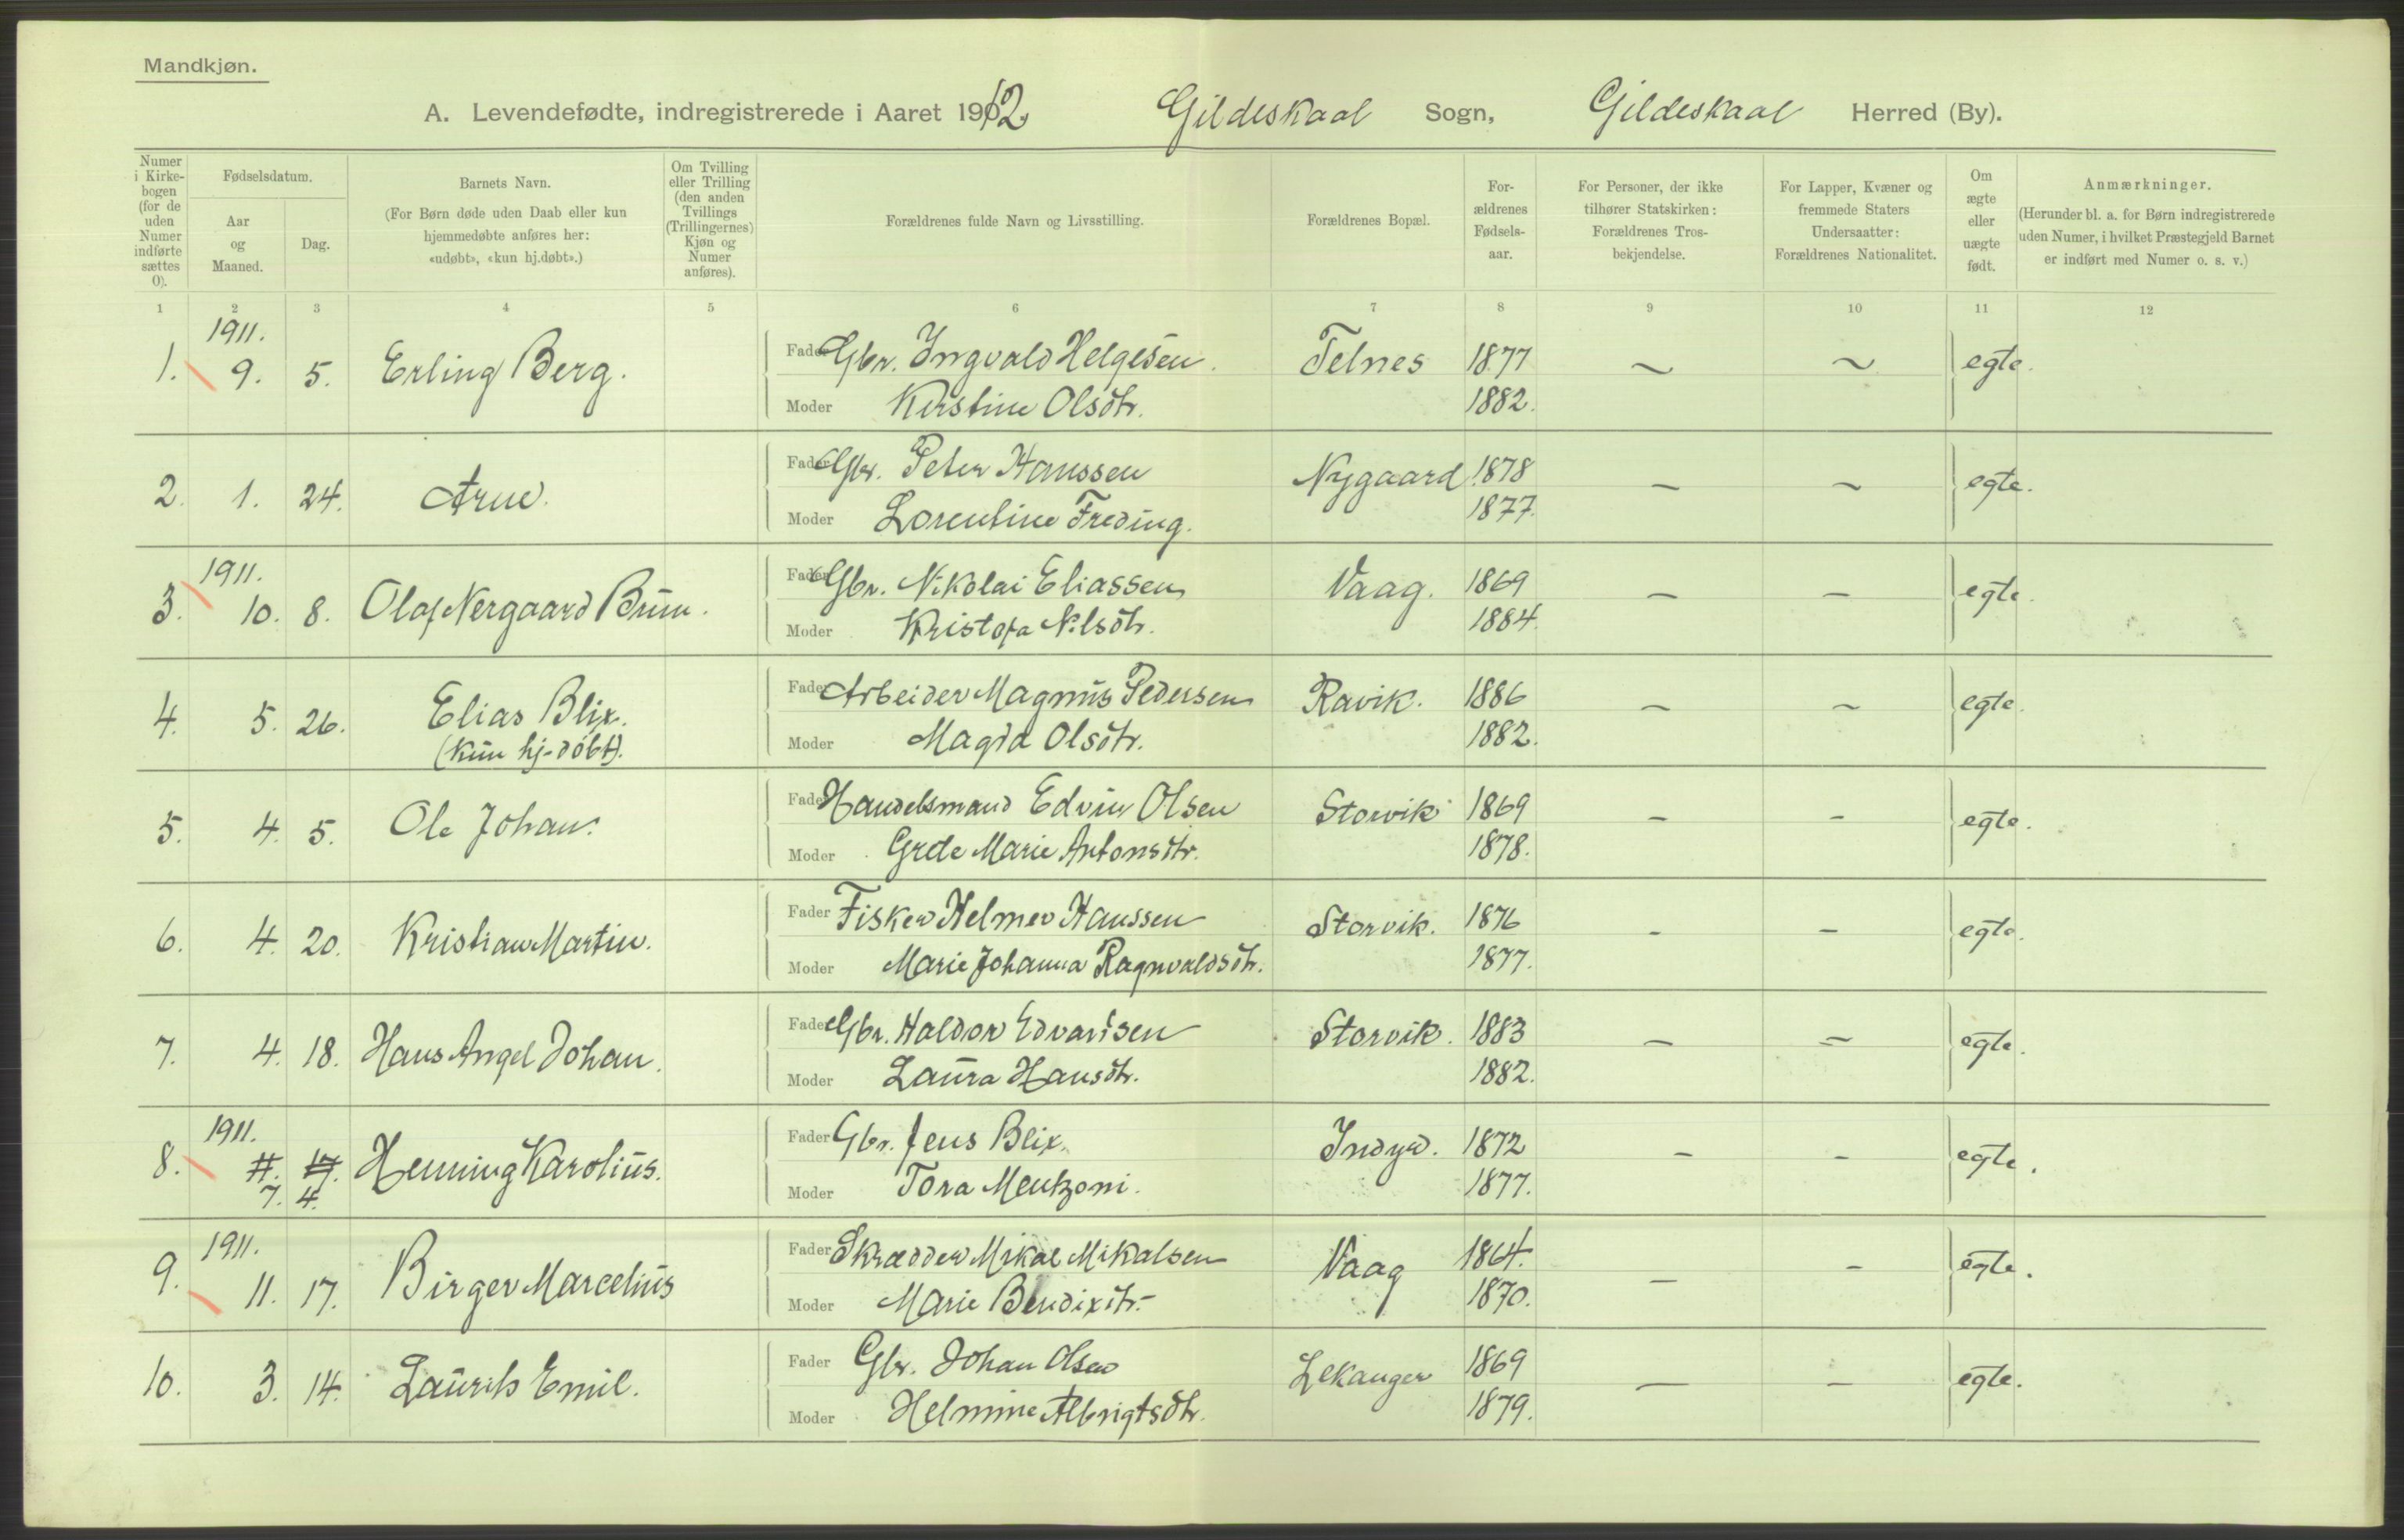 Mandkjøn.
A. Levendefødte, indregistrerede i Aaret 1912 Gildeskaal Sogn, Gildeskaal Herred (By).
Numer i Kirke- bogen (for de uden Numer indførte sættes 0).
Fødselsdatum.
Aar og Maaned.
Dag.
Barnets Navn.
(For Børn døde uden Daab eller kun
hjemmedøbte anføres her:
«udøbt», «kun hj.døbt».)
Om Tvilling
eller Trilling
(den anden
Tvillings
(Trillingernes)
Kjøn og
Numer
anføres).
Forældrenes fulde Navn og Livsstilling.
Forældrenes Bopæl.
For-
ældrenes
Fødsels-
aar.
For Personer, der ikke
tilhører Statskirken:
Forældrenes Tros-
bekjendelse.
For Lapper, Kvæner og
fremmede Staters
Undersaatter:
Forældrenes Nationalitet.
Om
ægte
eller
uægte
født.
Anmærkninger.
(Herunder bl. a. for Børn indregistrerede
uden Numer, i hvilket Præstegjeld Barnet
er indført med Numer o. s. v.)
1 2 3 4 5 6 7 8 9 10 11 12
1911.
1. 9. 5. Erling Berg. Fader Gbr. Ingvald Helgesen. Telnes 1877 ~ ~ egte.
Moder Kirstine Olsdtr. 1882.
2. 1. 24. Arne. Fader Gbr. Peter Hanssen Nygaard 1878 – ~ egte.
Moder Lorentine Freding. 1877.
1911.
3. 10. 8. Olaf Nergaard Brun. Fader Gbr. Nikolai Eliassen Vaag. 1869 – – egte.
Moder Kristofa Nilsdtr. 1884.
4. 5. 26. Elias Blix. Fader Arbeider Magnus Pedersen Ravik. 1886 – ~ egte.
(kun hj-døbt). Moder Magda Olsdtr. 1882.
5. 4. 5. Ole Johan. Fader Handelsmand Edvin Olsen Storvik 1869 – – egte.
Moder Grete Marie Antonsdtr. 1878.
6. 4. 20. Kristian Martin. Fader Fisker Helmer Hanssen Storvik. 1876 – – egte.
Moder Marie Johanna Ragnvaldsdtr. 1877.
7. 4. 18. Hans Angel Johan. Fader Gbr. Haldor Edvartsen Storvik. 1883 – – egte.
Moder Laura Hansdtr. 1882.
1911.
8. 11. 17. Henning Karolius. Fader Gbr. Jens Blix. Indyr. 1872 – – egte.
7. 4. Moder Tora Mentzoni. 1877.
1911.
9. 11. 17. Birger Marcelius Fader Skrædder Mikal Mikalsen Vaag 1864. – – egte.
Moder Marie Bendixdtr. 1870.
10. 3. 14. Laurits Emil. Fader Gbr. Johan Olsen Lekanger 1869 – – egte.
Moder Helmine Albrigtsdtr. 1879.